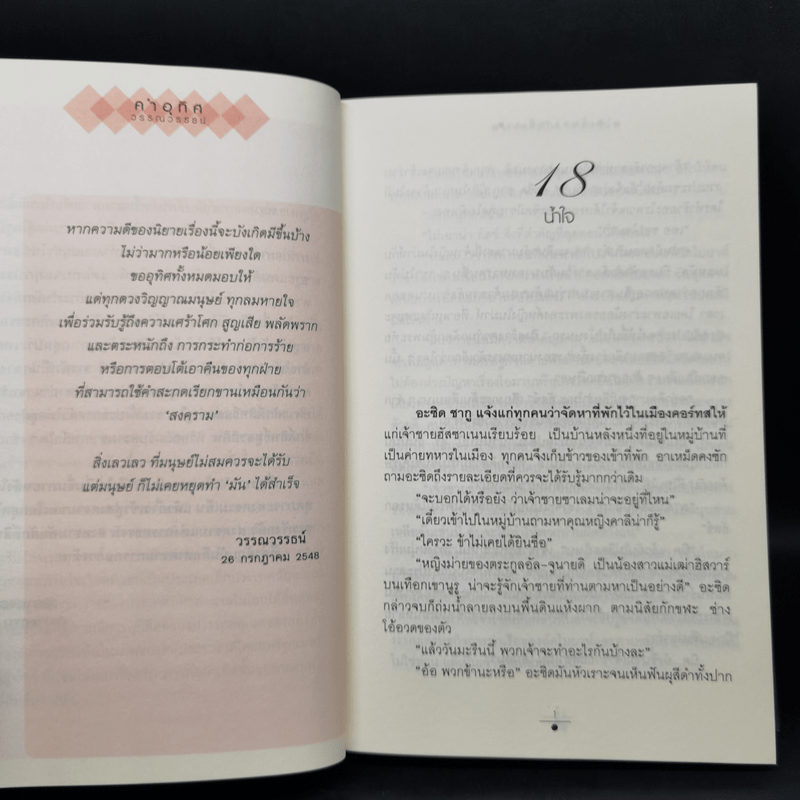 คำอุทิศ
วรรณวรรธน์
หากความดีของนิยายเรื่องนี้จะบังเกิดมีขึ้นบ้าง
ไม่ว่ามากหรือน้อยเพียงใด
ขออุทิศทั้งหมดมอบให้
แด่ทุกดวงวิญญาณมนุษย์ ทุกลมหายใจ
เพื่อร่วมรับรู้ถึงความเศร้าโศก สูญเสีย พลัดพราก
และตระหนักถึง การกระทำก่อการร้าย
หรือการตอบโต้เอาคืนของทุกฝ่าย
ที่สามารถใช้คำสะกดเรียกขานเหมือนกันว่า
'สงคราม'
สิ่งเลวเลว ที่มนุษย์ไม่สมควรจะได้รับ
แต่มนุษย์ ก็ไม่เคยหยุดทำ 'มัน' ได้สำเร็จ
วรรณวรรธน์
26 กรกฎาคม 2548
18
น้ำใจ
อะซิด ซากู แจ้งแก่ทุกคนว่าจัดหาที่พักไว้ในเมืองคอร์ทสให้
แก่เจ้าชายฮัสซาเนนเรียบร้อย เป็นบ้านหลังหนึ่งที่อยู่ในหมู่บ้านที่
เป็นค่ายทหารในเมือง ทุกคนจึงเก็บข้าวของเข้าที่พัก อาเหม็ดคงซัก
ถามอะซิดถึงรายละเอียดที่ควรจะได้รับรู้มากกว่าเดิม
"จะบอกได้หรือยัง ว่าเจ้าชายซาเลมน่าจะอยู่ที่ไหน"
"เดี๋ยวเข้าไปในหมู่บ้านถามหาคุณหญิงคาลีน่าก็รู้"
"ใครวะ ข้าไม่เคยได้ยินชื่อ"
"หญิงม่ายของตระกูลอัล-จูนายดิ เป็นน้องสาวแม่เฒ่าฮัสวาร์
บนเทือกเขานูรู น่าจะรู้จักเจ้าชายที่ท่านตามหาเป็นอย่างดี" อะซิด
กล่าวจบก็ถ่มน้ำลายลงบนพื้นดินแห้งผาก ตามนิสัยกักขฬะ ช่าง
โอ้อวดของตัว
"แล้ววันมะรืนนี้ พวกเจ้าจะทำอะไรกันบ้างละ"
"อ้อ พวกข้านะหรือ" อะซิดมันหัวเราะจนเห็นฟันผุสีดำทั้งปาก
1